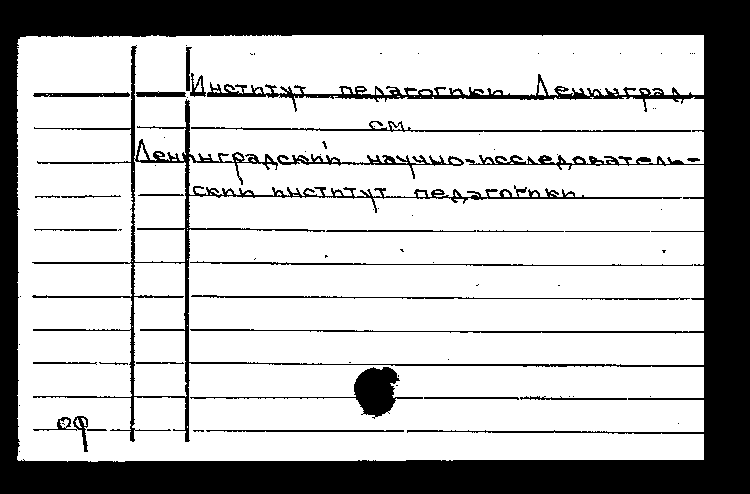 Институт педагогики. Ленинград.
см.
Ленинградский научно-исследователь-
ский институт педагогики.
оф